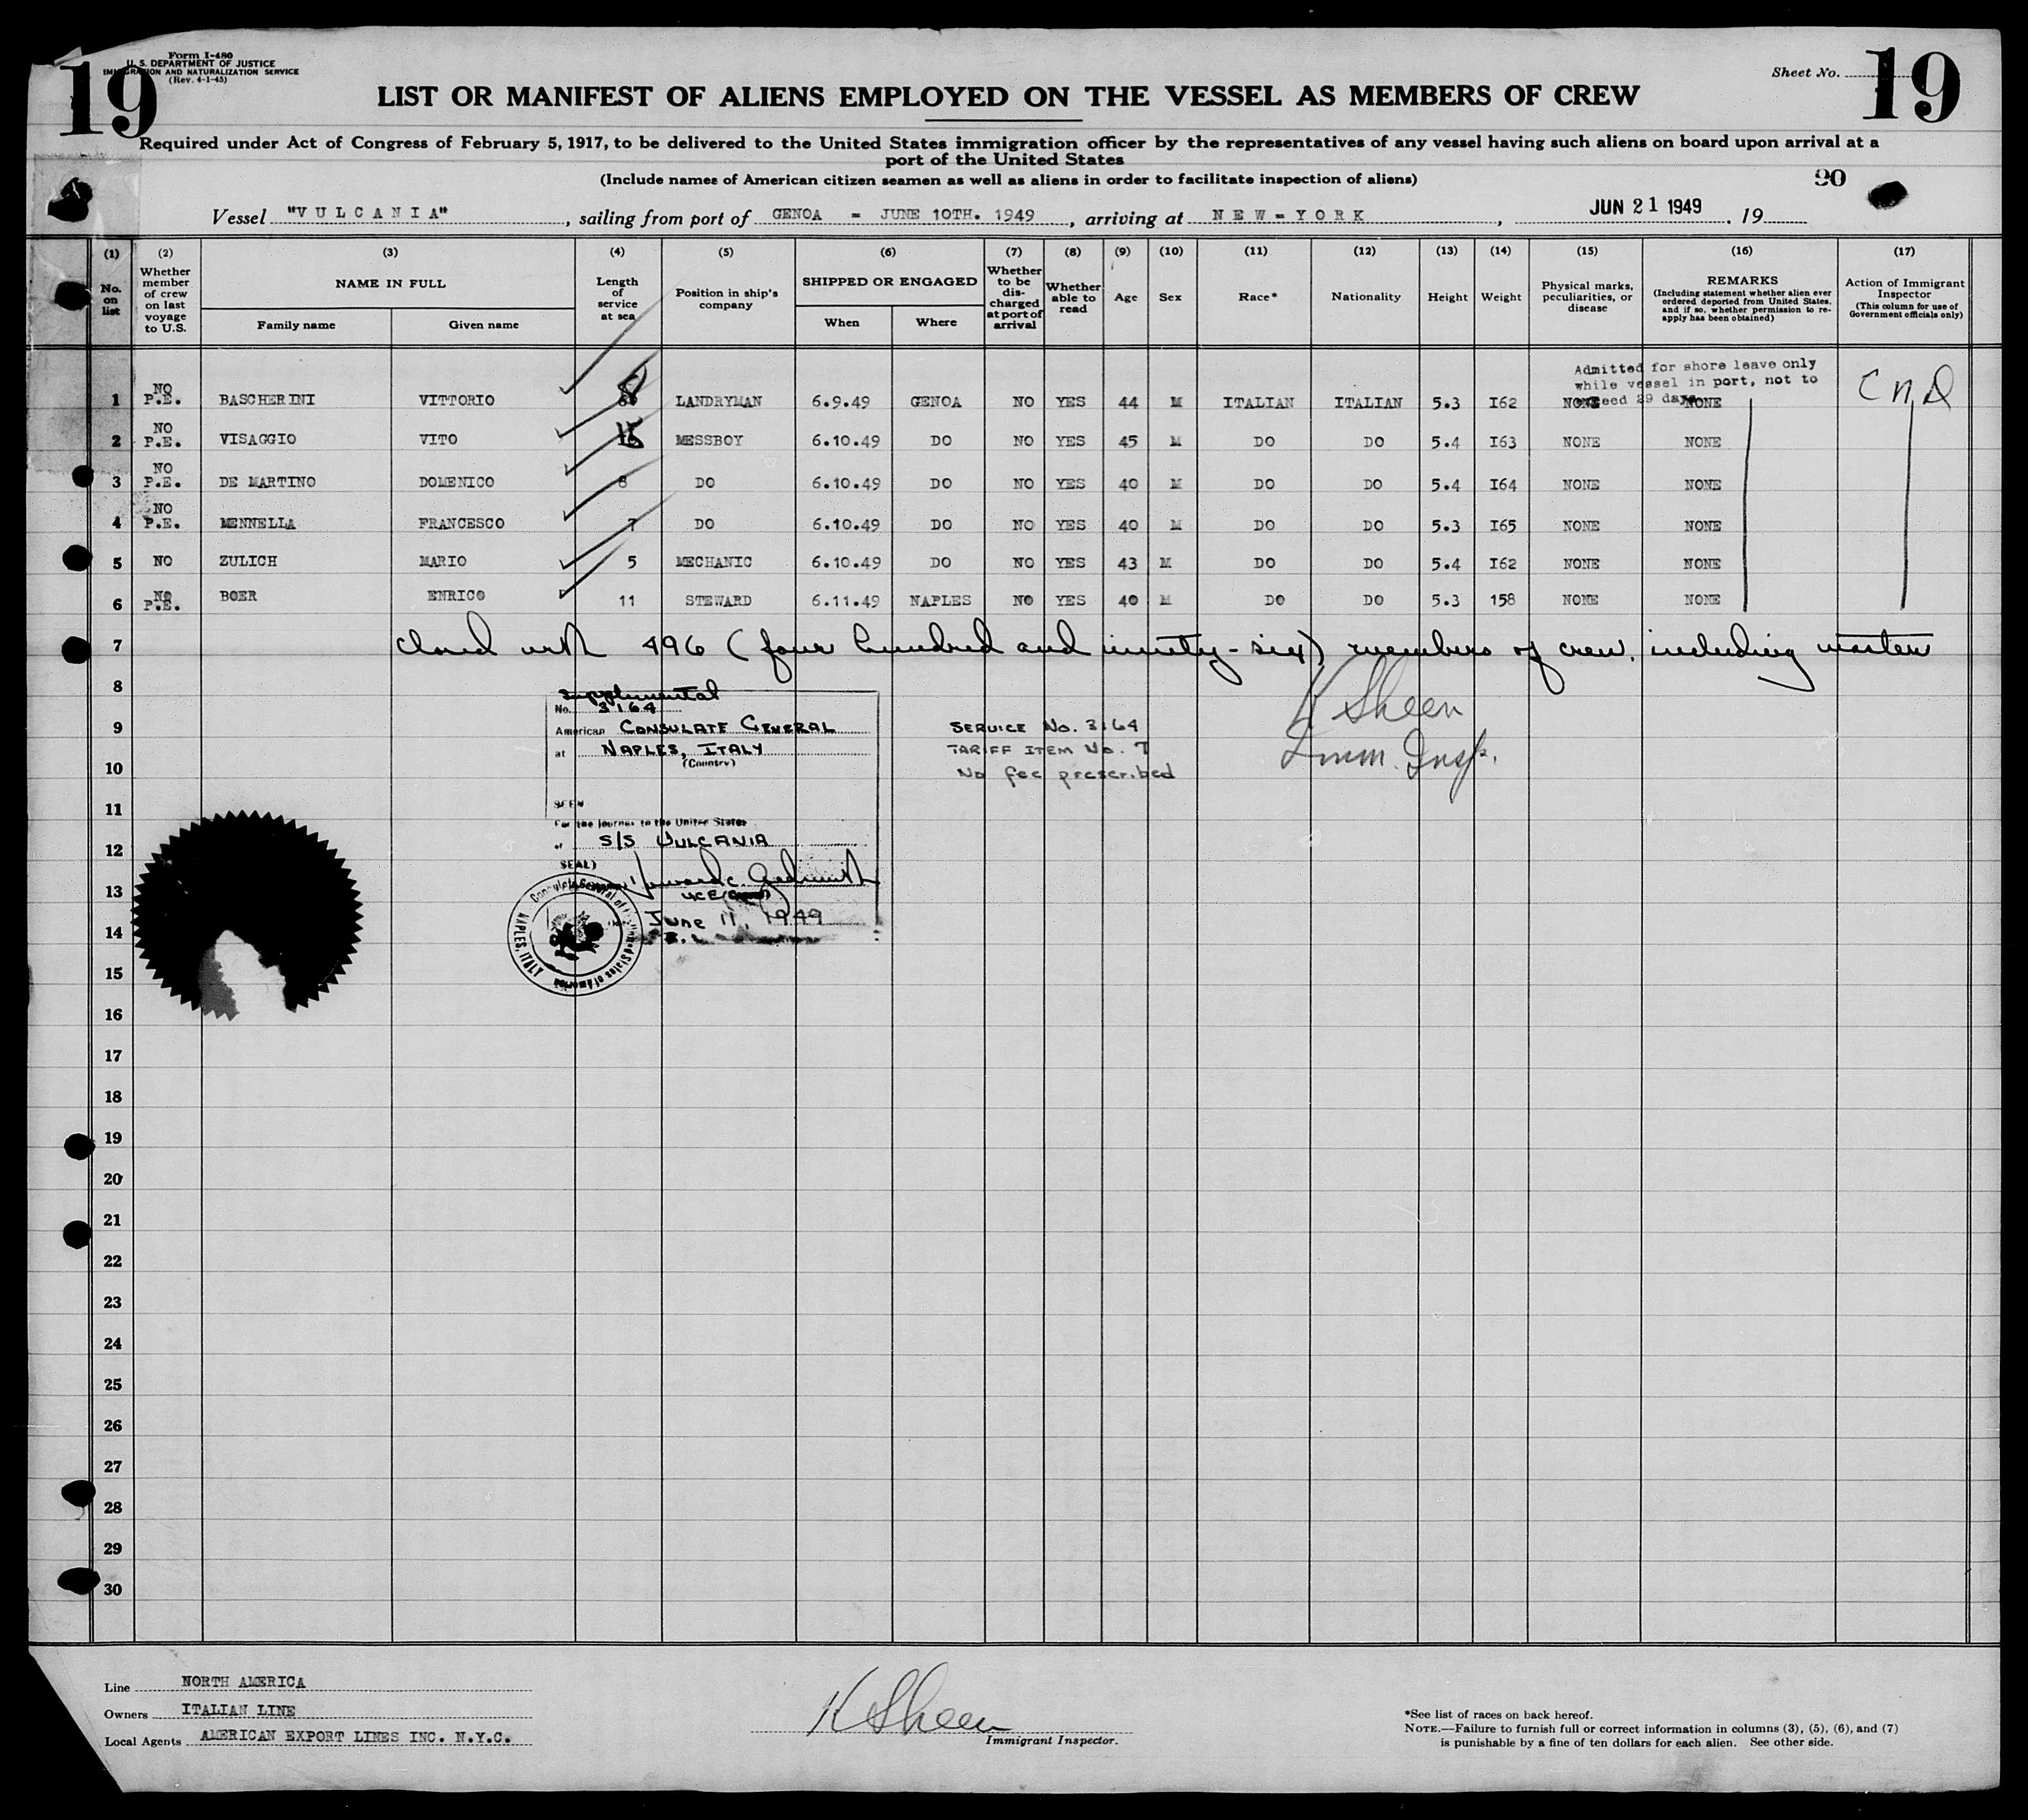 19
Form I-480
U. S. DEPARTMENT OF JUSTICE
IMMIGRATION AND NATURALIZATION SERVICE
(Rev. 4-1-45)
Sheet No. 19
LIST OR MANIFEST OF ALIENS EMPLOYED ON THE VESSEL AS MEMBERS OF CREW
Required under Act of Congress of February 5, 1917, to be delivered to the United States immigration officer by the representatives of any vessel having such aliens on board upon arrival at a
port of the United States
(Include names of American citizen seamen as well as aliens in order to facilitate inspection of aliens)
90
Vessel "VULCANIA", sailing from port of GENOA - JUNE 10TH. 1949, arriving at NEW-YORK, JUN 21 1949, 19
(1) (2) (3) (4) (5) (6) (7) (8) (9) (10) (11) (12) (13) (14) (15) (16) (17)
No. on list
Whether member of crew on last voyage to U.S.
NAME IN FULL
Family name Given name
Length of service at sea
Position in ship's company
SHIPPED OR ENGAGED
When Where
Whether to be discharged at port of arrival
Whether able to read
Age
Sex
Race*
Nationality
Height
Weight
Physical marks, peculiarities, or disease
REMARKS
(Including statement whether alien ever ordered deported from United States, and if so, whether permission to re-apply has been obtained)
Action of Immigrant Inspector
(This column for use of Government officials only)
Admitted for shore leave only
while vessel in port, not to
exceed 29 days
1 NO P.E. BASCHERINI VITTORIO 8 LANDRYMAN 6.9.49 GENOA NO YES 44 M ITALIAN ITALIAN 5.3 I62 NONE NONE
2 NO P.E. VISAGGIO VITO MESSBOY 6.10.49 DO NO YES 45 M DO DO 5.4 I63 NONE NONE
3 NO P.E. DE MARTINO DOMENICO 8 DO 6.10.49 DO NO YES 40 M DO DO 5.4 I64 NONE NONE
4 NO P.E. MENNELLA FRANCESCO 7 DO 6.10.49 DO NO YES 40 M DO DO 5.3 I65 NONE NONE
5 NO ZULICH MARIO 5 MECHANIC 6.10.49 DO NO YES 43 M DO DO 5.4 I62 NONE NONE
6 NO P.E. BOER ENRICO 11 STEWARD 6.11.49 NAPLES NO YES 40 M DO DO 5.3 158 NONE NONE
7 Closed with 496 (four hundred and ninety-six) members of crew, including master
8
9
10
11
12
13
14
15
16
17
18
19
20
21
22
23
24
25
26
27
28
29
30
Supplemental
No. 3164
American CONSULATE GENERAL
at NAPLES, ITALY
(Country)
SEEN
For the journey to the United States
of S/S VULCANIA
SEAL)
June 11, 1949
SERVICE No. 3164
TARIFF ITEM No. 7
No fee prescribed
K Sheen
Imm. Insp.
Line NORTH AMERICA
Owners ITALIAN LINE
Local Agents AMERICAN EXPORT LINES INC. N.Y.C.
K Sheen
Immigrant Inspector.
*See list of races on back hereof.
NOTE.—Failure to furnish full or correct information in columns (3), (5), (6), and (7)
is punishable by a fine of ten dollars for each alien. See other side.